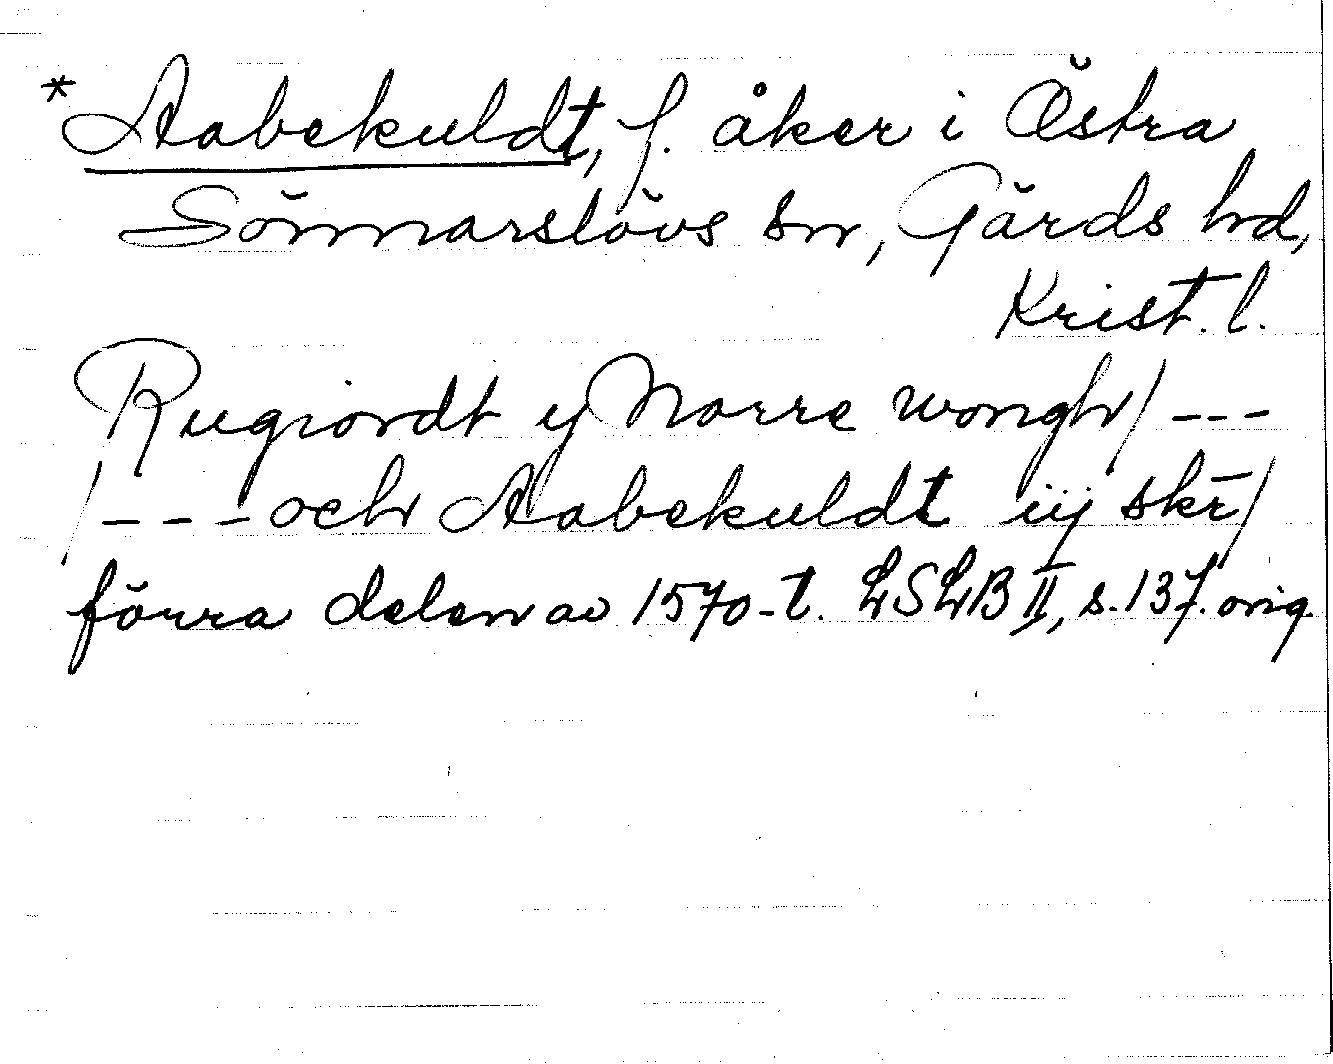 *Aabekuldt, f. åker i Östra
Sönnarslövs sn, Gärds hd,
Krist. l.
Rugiordt y Norre wongh/ ---
/--- och Aabekuldt iij skr̄/
förra delen av 1570-t. LSLB II, s. 137. orig.